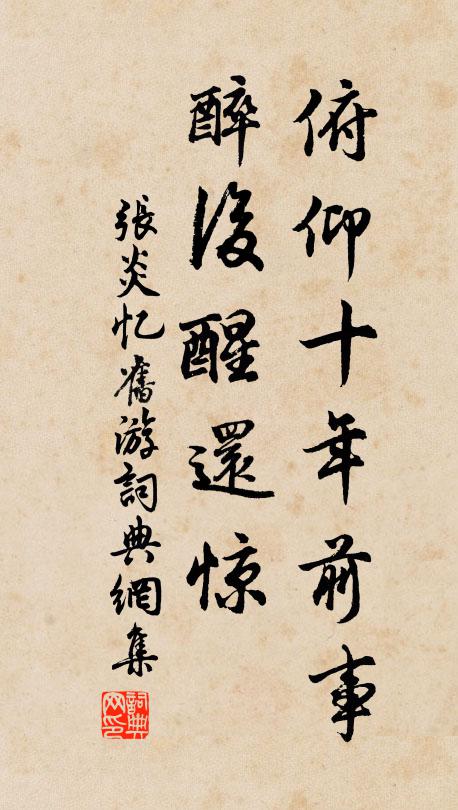 俯仰十年前事
醉後醒還惊
張炎忆舊游詞典網集
詞典网印